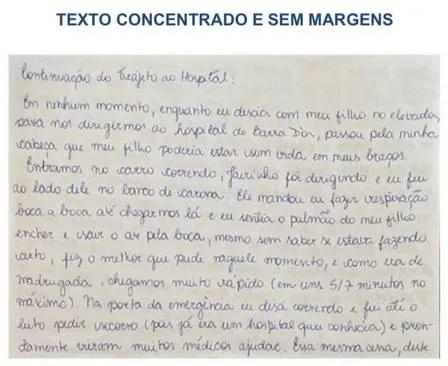 TEXTO CONCENTRADO E SEM MARGENS
Continuação do Trajeto ao Hospital:
Em nenhum momento, enquanto eu descia com meu filho no elevador,
para nos dirigirmos ao hospital do Barra D'or, passou pela minha
cabeça que meu filho poderia estar sem vida em meus braços.
Entramos no carro correndo, Jairinho foi dirigindo e eu fui
ao lado dele no banco de carona. Ele mandou eu fazer respiração
boca a boca até chegarmos lá e eu sentia o pulmão do meu filho
encher e usar o ar pela boca, mesmo sem saber se estava fazendo
certo, fiz o melhor que pude naquele momento, e como era de
madrugada, chegamos muito rápido (em uns 5/7 minutos no
máximo). Na porta da emergência eu desci correndo e fui até o
leito pedir socorro (pois já era um hospital que conhecia) e pron-
tamente vieram muitos médicos ajudar. Essa mesma cena, deste